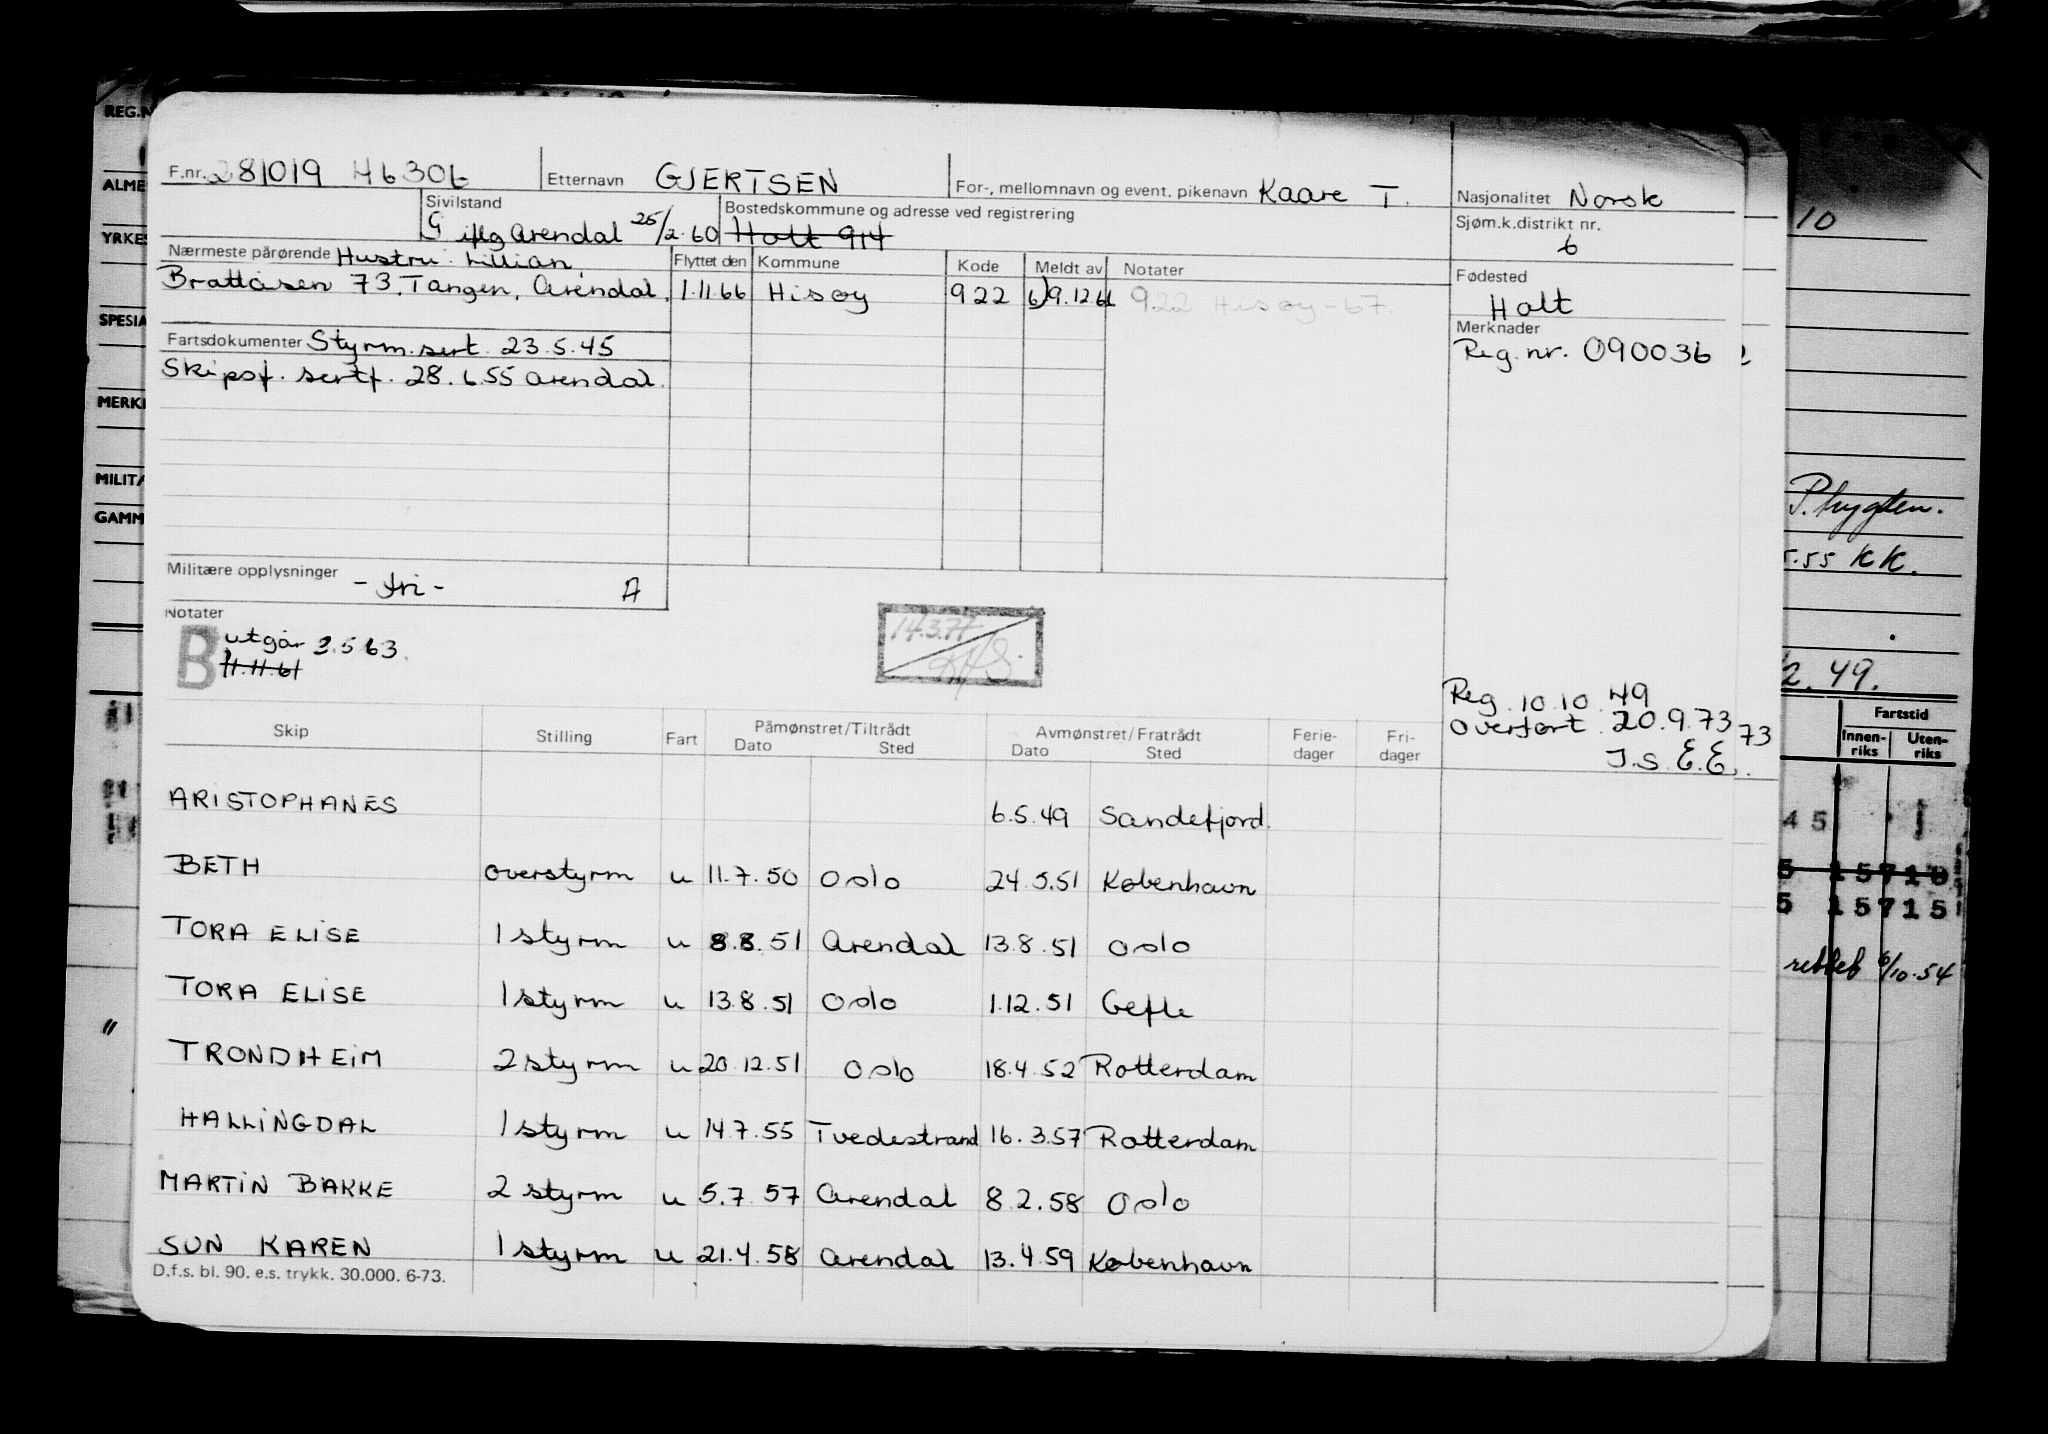 F.nr. 281019 46306 Etternavn GJERTSEN For-, mellomnavn og event. pikenavn Kaare T. Nasjonalitet Norsk
Sivilstand G iflg Arendal 25/2.60 Bostedskommune og adresse ved registrering Holt 914 Sjøm.k.distrikt nr. 6
Nærmeste pårørende Hustru: Lillian, Flyttet den Kommune Kode Meldt av Notater Fødested Holt
Brattåsen 73, Tangen, Arendal. 1.11.66 Hisøy 922 6) 9.12.66 922 Hisøy-67.
Fartsdokumenter Styrm.sert. 23.5.45 Merknader Reg.nr. 090036
Skipsf. sertf. 28.6.55 Arendal.
Militære opplysninger - fri - A
Notater
B utgår 3.5.63.
11.11.61
14.3.77
Reg. 10.10.49
Overført 20.9.73
I.S. E.E.
73
Skip Stilling Fart Påmønstret/Tiltrådt Dato Sted Avmønstret/Fratrådt Dato Sted Ferie-dager Fri-dager
ARISTOPHANES 6.5.49 Sandefjord.
BETH overstyrm u 11.7.50 Oslo 24.5.51 København
TORA ELISE 1 styrm u 8.8.51 Arendal 13.8.51 Oslo
TORA ELISE 1 styrm u 13.8.51 Oslo 1.12.51 Gefle
TRONDHEIM 2 styrm u 20.12.51 Oslo 18.4.52 Rotterdam
HALLINGDAL 1 styrm u 14.7.55 Tvedestrand 16.3.57 Rotterdam
MARTIN BAKKE 2 styrm u 5.7.57 Arendal 8.2.58 Oslo
SUN KAREN 1 styrm u 21.4.58 Arendal 13.4.59 København
D.f.s. bl. 90. e.s. trykk. 30.000. 6-73.
REG.N
ALME
YRKES
SPESIA
MERKI
MILITÆ
GAMM
"
10
5.55 KK.
2.49.
Fartstid
Innen-riks Uten-riks
45
5 15710
5 15715
rettet 6/10.54